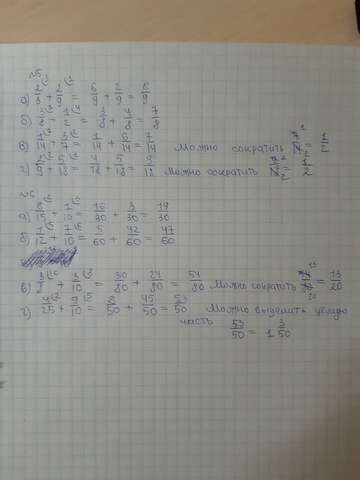 №5
а) 2/3 + 2/9 = 6/9 + 2/9 = 8/9
б) 3/8 + 1/2 = 3/8 + 4/8 = 7/8
в) 1/14 + 3/7 = 1/14 + 6/14 = 7/14 Можно сократить 7/14 = 1/2
г) 2/9 + 5/18 = 4/18 + 5/18 = 9/18 Можно сократить = 1/2
№6
а) 8/15 + 1/10 = 16/30 + 3/30 = 19/30
б) 1/12 + 7/10 = 5/60 + 42/60 = 47/60
в) 3/8 + 3/10 = 30/80 + 24/80 = 54/80 Можно сократить = 13/20
г) 4/25 + 9/10 = 8/50 + 45/50 = 53/50 Можно выделить целую
часть 53/50 = 1 3/50